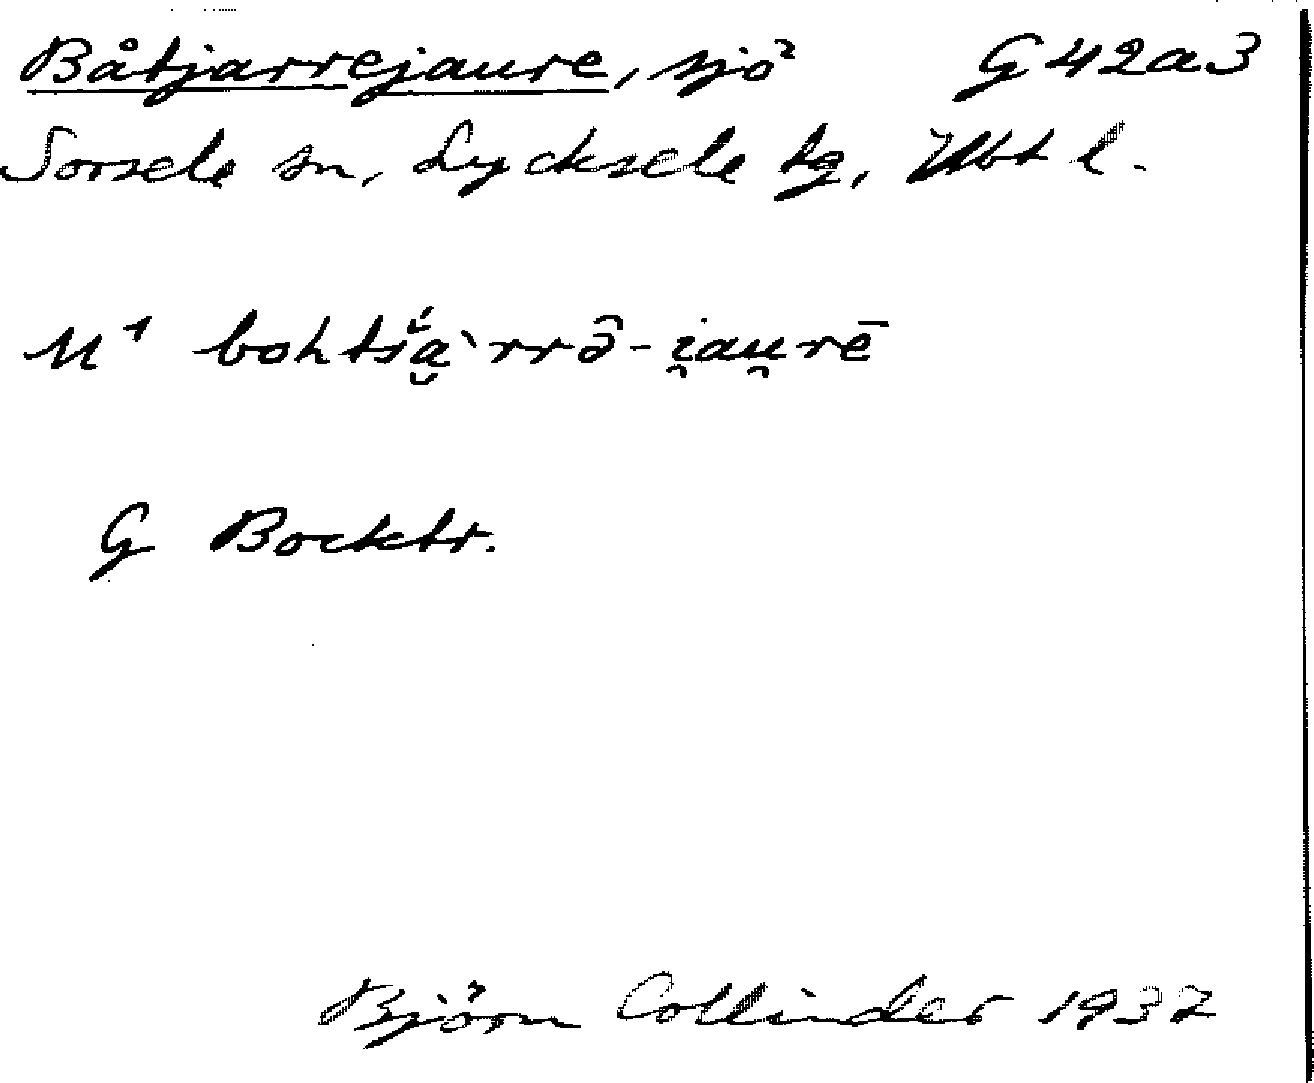 Båtjarrejaure, sjö G 42a3
Sorsele sn, Lycksele tg, Vbt l.
U¹ bohtšá̮`rrə̑-i̯au̯rē
G Bocktr.
Björn Collinder 1937